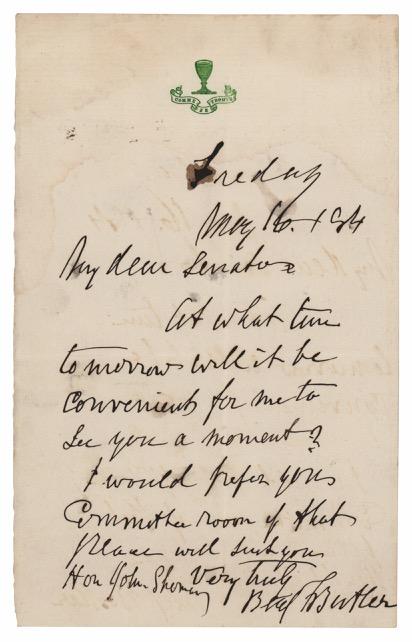 COMME JE TROUVE
Friday
May 16. 1884
My dear Senator
At what time
tomorrow will it be
convenient for me to
see you a moment?
I would prefer your
Committee room if that
place will suit you
Very truly
Hon John Sherman
Benj F Butler